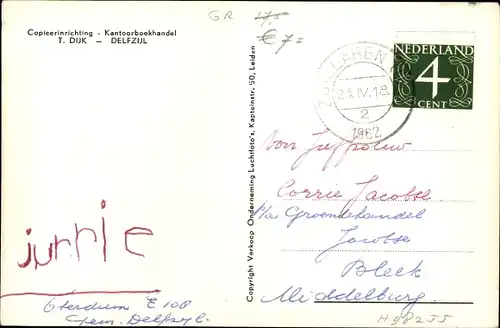 GR 17,5
€ 7=
Copieerinrichting - Kantoorboekhandel
T. DIJK — DELFZIJL
ZUIDLAREN
21.IV.18.
2
1962
NEDERLAND
4
CENT
Copyright Verkoop Onderneming Luchtfoto's, Kapteinstr. 50, Leiden
Corrie Jacobse
p/a Groentehandel
Jacobse
Bleek
Middelburg
jurrie
Oterdum E 108
Gem. Delfzijl.
H98255